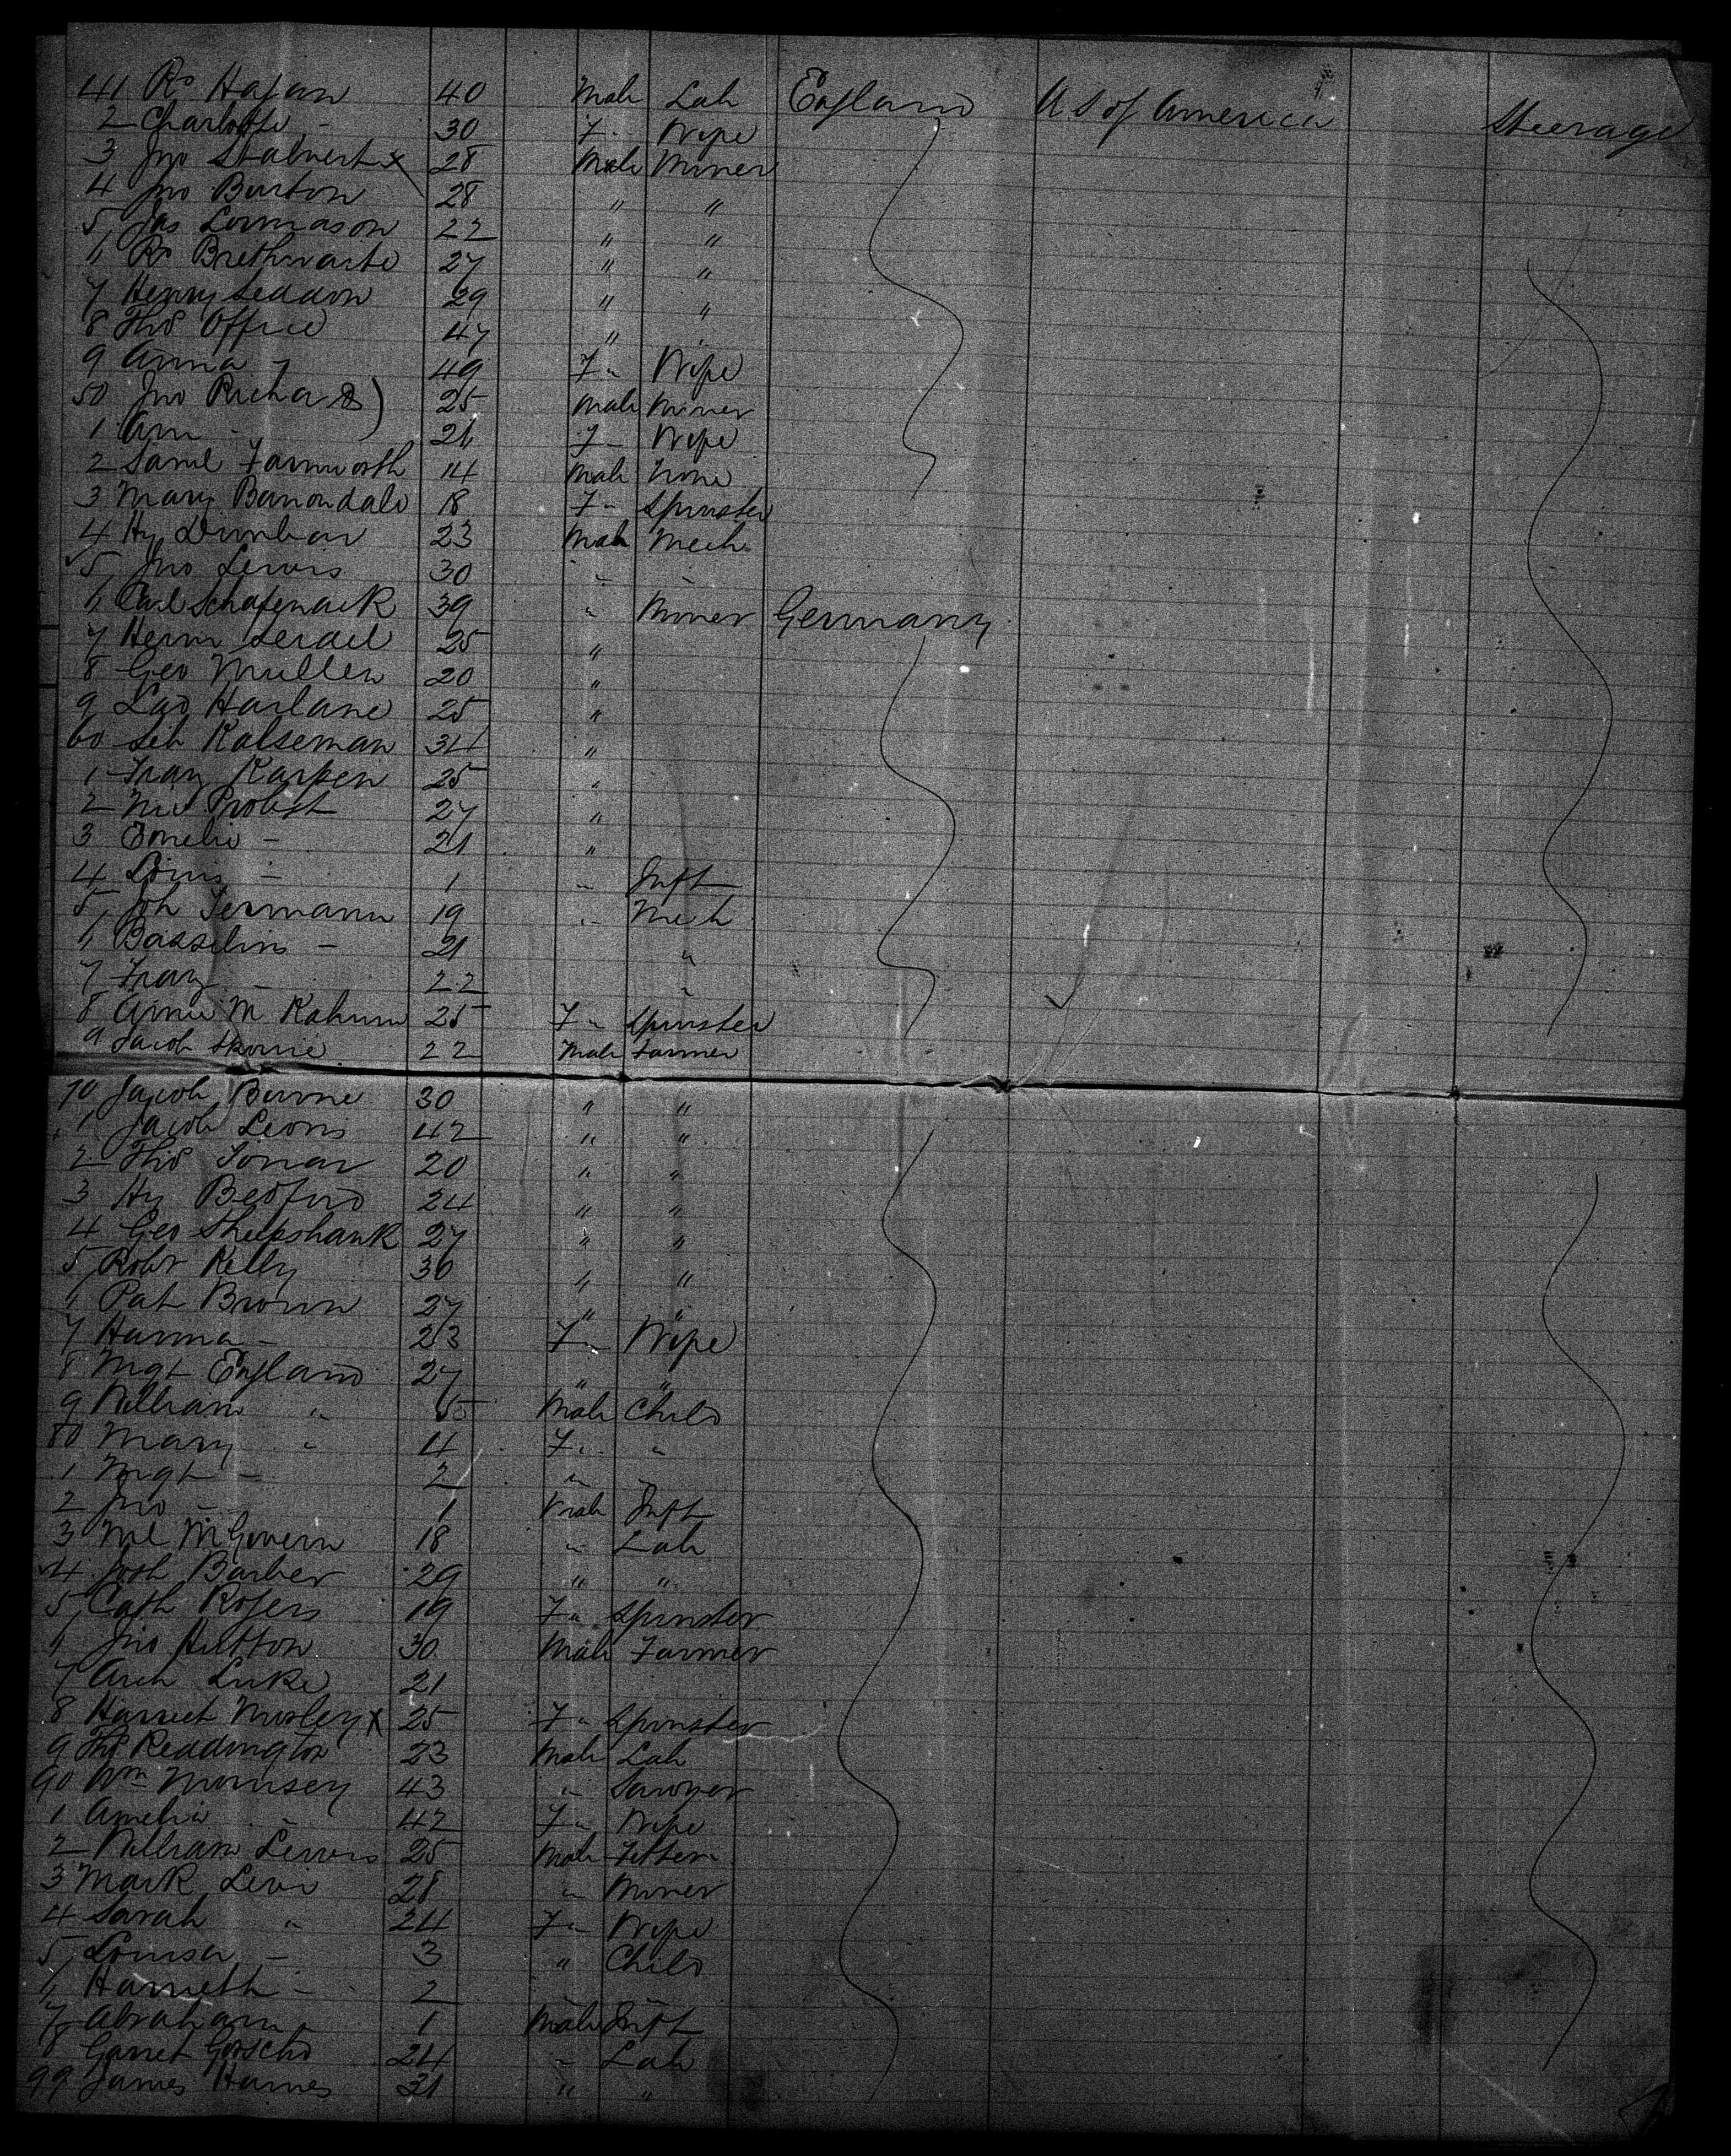 41 Rd Hagan 40 Male Lab England U S of America Steerage
2 Charlotte - 30 F " Wife
3 Jno Stalvert x 28 Male Miner
4 Jno Burton 28 " "
5 Jas Lormason 22 " "
6 Rd Brethwaite 27 " "
7 Henry Seddon 29 " "
8 Thos Office 47 " "
9 Anna " 49 F " Wife
50 Jno Richards ) 25 Male Miner
1 Ann - 26 F - Wife
2 Saml Farnworth 14 Male None
3 Mary Barrondale 18 F " Spinster
4 Hy Dunbar 23 Male Mech
5 Jno Lewis 30 " "
6 Carl Schafenack 39 " Miner Germany
7 Herm 25 "
8 Geo Muller 20 "
9 Harlane 25 "
60 Seb Kalseman 34 "
1 Franz Karpen 25 "
2 Probst 27 "
3 Emelie - 21 "
4 Louis - 1 " Inft
5 Joh Termann 19 " Mech
6 - 21 "
7 Franz - 22 "
8 Annie M Kahum 25 F " Spinster
9 Jacob 22 Male Farmer
70 Jacob Burne 30 " "
1 Jacob Leons 42 " "
2 Thos 20 " "
3 Hy Bedford 24 " "
4 Geo Sheepshank 27 " "
5 Robt Kelly 30 " "
6 Pat Brown 27 " "
7 Hanna - 23 F " Wife
8 Mgt England 27 " "
9 William " 5 Male Child
80 Mary " 4 F " "
1 Mgt - 2 " "
2 Jno - 1 Male Inft
3 Ml McGovern 18 " Lab
4 Josh Barber 29 " "
5 Cath Rogers 19 F " Spinster
6 Jno Hutton 30 Male Farmer
7 Arch Luke 21
8 Harriet Mosley x 25 F " Spinster
9 Thos Readdington 23 Male Lab
90 Wm Mounsey 43 " Sawyer
1 Amelia " 42 F " Wife
2 William Lewis 25 Male Fitter
3 Mark Levi 28 " Miner
4 Sarah " 24 F " Wife
5 Louisa - 3 " Child
6 Harrieth - 2 " "
7 Abraham " 1 Male Inft
8 Garret 24 " Lab
99 James Harnes 31 " "